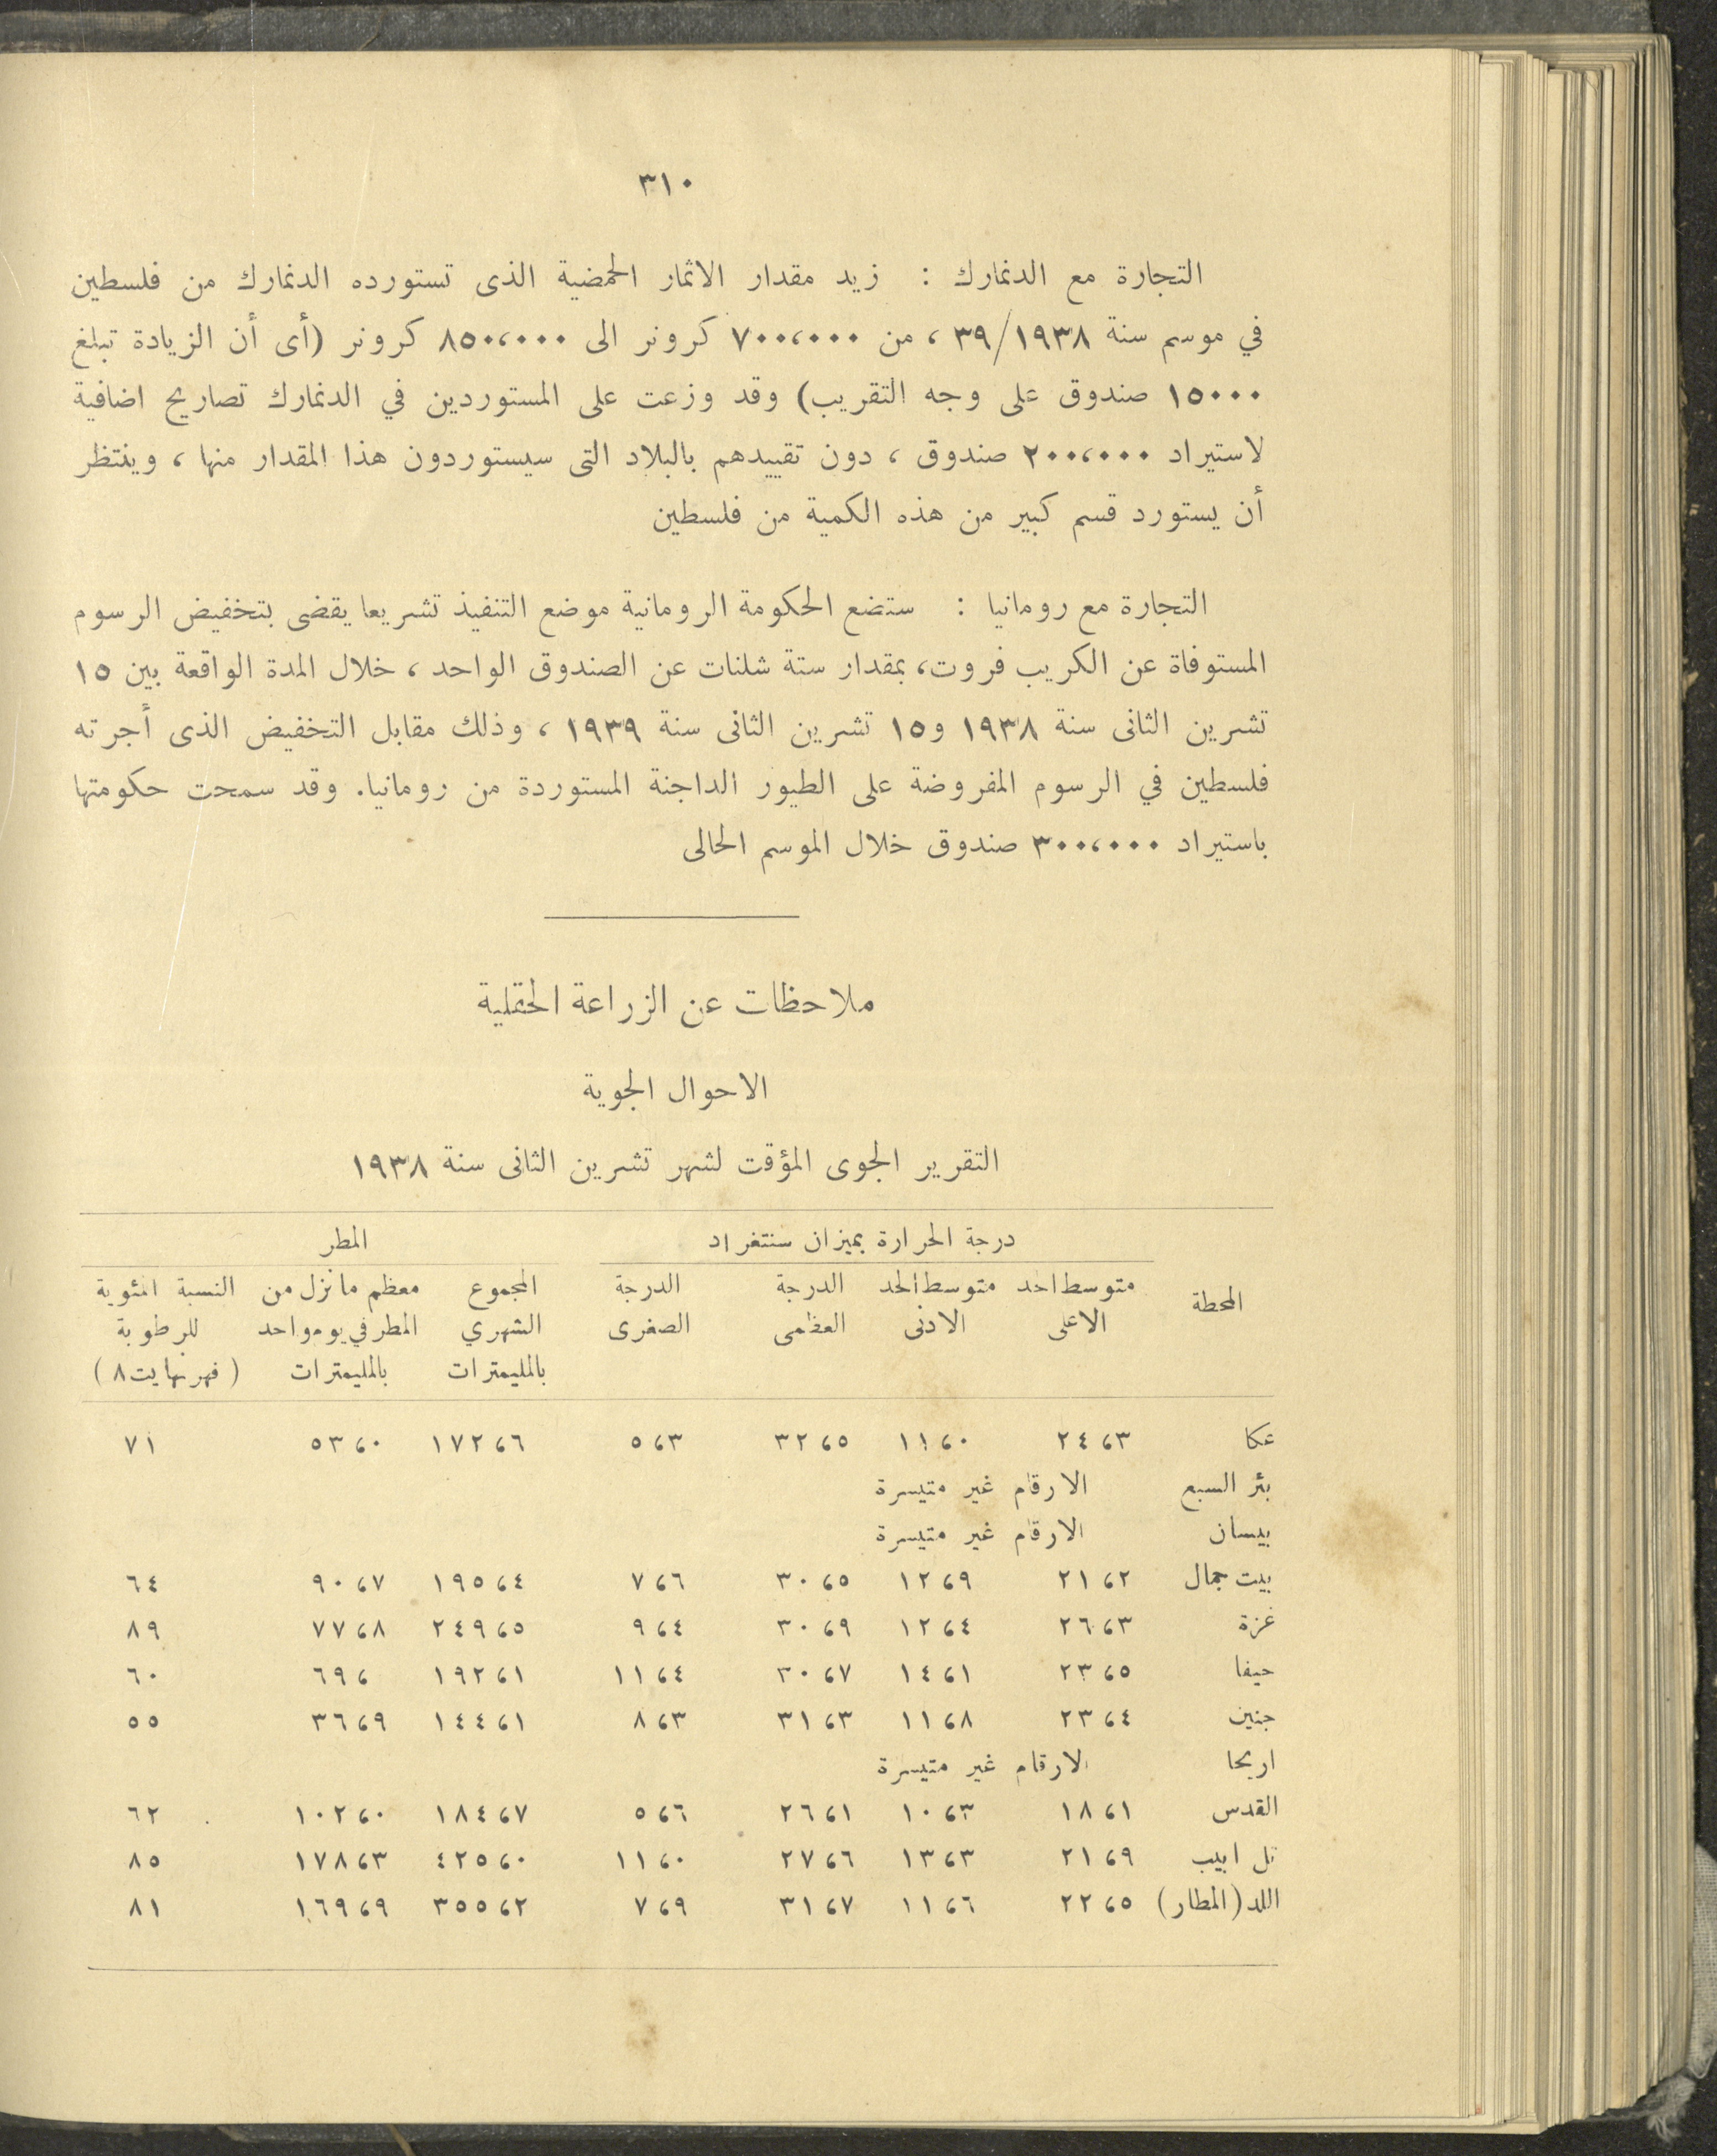 ٣١٠
التجارة مع الدنمارك : زيد مقدار الاثمار الحمضية الذى تستورده الدنمارك من فلسطين
في موسم سنة ٣٩/١٩٣٨ ، من ٧٠٠،٠٠٠ كرونر الى ٨٥٠،٠٠٠ كرونر (أى أن الزيادة تبلغ
١٥٠٠٠ صندوق على وجه التقريب) وقد وزعت على المستوردين في الدنمارك تصاريح اضافية
لاستيراد ٢٠٠،٠٠٠ صندوق ، دون تقييدهم بالبلاد التى سيستوردون هذا المقدار منها ، وينتظر
أن يستورد قسم كبير من هذه الكمية من فلسطين
التجارة مع رومانيا : ستضع الحكومة الرومانية موضع التنفيذ تشريعا يقضى بتخفيض الرسوم
المستوفاة عن الكريب فروت، بمقدار ستة شلنات عن الصندوق الواحد ، خلال المدة الواقعة بين ١٥
تشرين الثانى سنة ١٩٣٨ و١٥ تشرين الثانى سنة ١٩٣٩ ، وذلك مقابل التخفيض الذى أجرته
فلسطين في الرسوم المفروضة على الطيور الداجنة المستوردة من رومانيا. وقد سمحت حكومتها
باستيراد ٣٠٠،٠٠٠ صندوق خلال الموسم الحالى
ملاحظات عن الزراعة الحقلية
الاحوال الجوية
التقرير الجوى المؤقت لشهر تشرين الثانى سنة ١٩٣٨
درجة الحرارة بميزان سنتغراد المطر
المحطة متوسط الحد متوسط الحد الدرجة الدرجة المجموع معظم ما نزل من النسبة المئوية
الاعلى الادنى العظمى الصغرى الشهري المطر في يوم واحد للرطوبة
بالمليمترات بالمليمترات (فهرنهايت ٨)
عكا ٢٤،٣ ١١،٠ ٣٢،٥ ٥،٣ ١٧٢،٦ ٥٣،٠ ٧١
بئر السبع الارقام غير متيسرة
بيسان الارقام غير متيسرة
بيت جمال ٢١،٢ ١٢،٩ ٣٠،٥ ٧،٦ ١٩٥،٤ ٩٠،٧ ٦٤
غزة ٢٦،٣ ١٢،٤ ٣٠،٩ ٩،٤ ٢٤٩،٥ ٧٧،٨ ٨٩
حيفا ٢٣،٥ ١٤،١ ٣٠،٧ ١١،٤ ١٩٢،١ ٦٩، ٦٠
جنين ٢٣،٤ ١١،٨ ٣١،٣ ٨،٣ ١٤٤،١ ٣٦،٩ ٥٥
اريحا الارقام غير متيسرة
القدس ١٨،١ ١٠،٣ ٢٦،١ ٥،٦ ١٨٤،٧ ١٠٢،٠ ٦٢
تل ابيب ٢١،٩ ١٣،٣ ٢٧،٦ ١١،٠ ٤٢٥،٠ ١٧٨،٣ ٨٥
اللد (المطار) ٢٢،٥ ١١،٦ ٣١،٧ ٧،٩ ٣٥٥،٢ ١٦٩،٩ ٨١